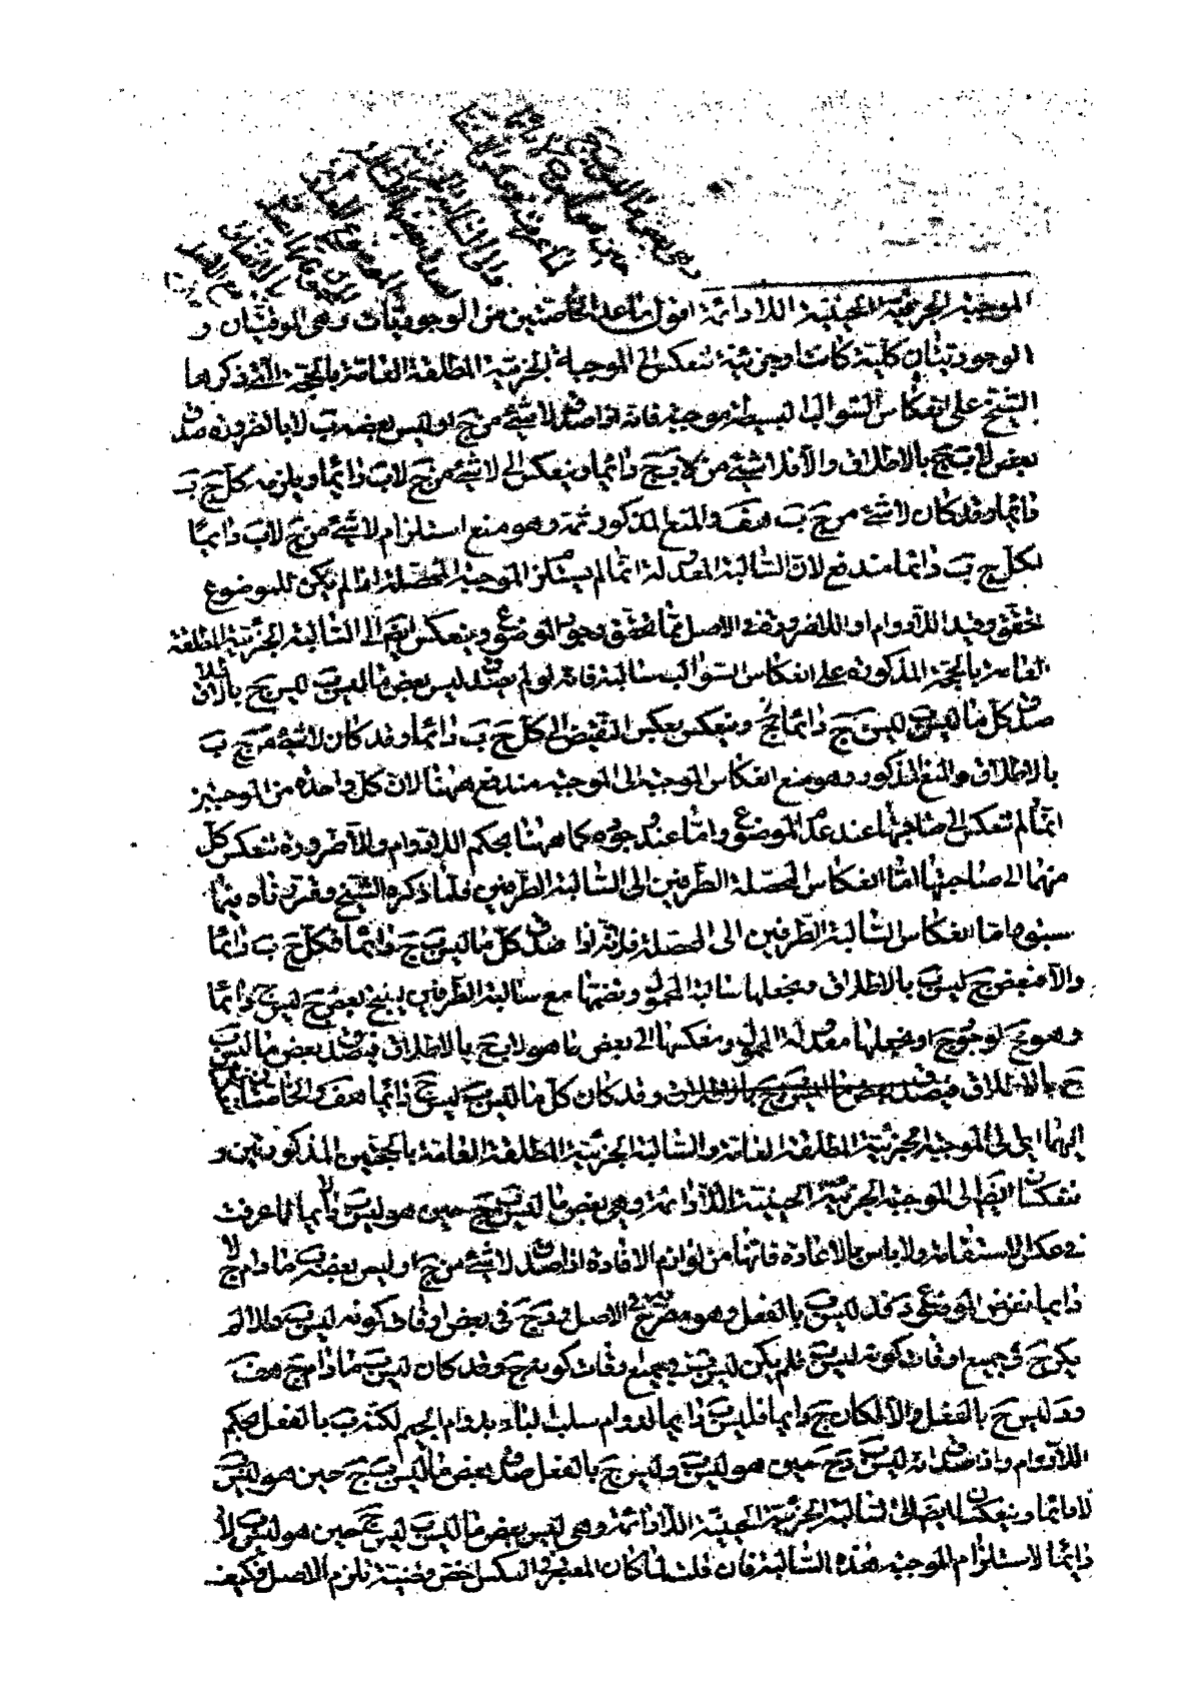 الموجبة الجزئية الحينية اللادائمة اقول ما عدا الخاصتين من الوجوديات وهى الوقتيتان و
الوجوديتان كلية كانت او جزئية تنعكس الى الموجبة الجزئية المطلقة العامة بالحجة التى ذكرها
الشيخ على انعكاس السوالب البسيطة موجبة فانه اذا صدق لا شئ من ج او ليس بعضه ب لا بالضرورة صدق
بعض لا ب ج بالاطلاق والا فلا شئ من لا ب ج دائما وينعكس الى لا شئ من ج لا ب دائما ويلزمه كل ج ب
دائما وقد كان لا شئ من ج ب هف والمنع المذكور ثمة وهو منع استلزام لا شئ من ج لا ب دائما
لكل ج ب دائما مندفع لان السالبة المعدولة انما لم يستلزم الموجبة المحصلة اذا لم يكن للموضوع
تحقق وقيد اللادوام او اللاضرورة فى الاصل مما يحقق وجود الموضوع وينعكس ايض الى السالبة الجزئية المطلقة
العامة بالحجة المذكورة على انعكاس السوالب سالبة فانه لو لم يصدق ليس بعض ما ليس ب ليس ج بالاطلاق
صدق كل ما ليس ب ليس ج دائما وينعكس بعكس النقيض الى كل ج ب دائما وقد كان لا شئ من ج ب
بالاطلاق والمنع المذكور وهو منع انعكاس الموجبة الى الموجبة مندفع ههنا لان كل واحدة من الموجبتين
انما لم تنعكس الى صاحبتها عند عدم الموضوع واما عند وجوده كما ههنا بحكم اللادوام واللاضرورة تنعكس كل
منهما الى صاحبتها اما انعكاس المحصلة الطرفين الى السالبة الطرفين فلما ذكره الشيخ وقررناه فيما
سبق واما انعكاس السالبة الطرفين الى المحصلة فلانه اذا صدق كل ما ليس ب ج دائما فكل ج ب دائما
والا فبعض ج ليس ب بالاطلاق ونجعلها سالبة المحمول ونضمها مع سالبة الطرفين ينتج بعض ج ليس ج دائما
وهو مح لوجود ج او نجعلها معدولة المحمول ونعكسها الى بعض ما هو لا ب ج بالاطلاق فيصدق بعض ما ليس ب
ج بالاطلاق وقد كان كل ما ليس ب ليس ج دائما هف والخاصتان تنعكسان
اليهما اى الى الموجبة الجزئية المطلقة العامة والسالبة الجزئية المطلقة العامة بالحجتين المذكورتين و
تنعكسان ايضا الى الموجبة الجزئية الحينية اللادائمة وهى بعض ما ليس ب ج حين هو ليس ب لا دائما لما عرفت
فى عكس الاستقامة ولا باس بالاعادة فانها من لوازم الافادة اذا صدق لا شئ من ج او ليس بعضه ب ما دام ج لا
دائما نفرض الموضوع د فد ليس ب بالفعل وهو مصرح فى الاصل و د ج فى بعض اوقات كونه ليس ب والا لم
يكن ج فى جميع اوقات كونه ليس ب فلم يكن ليس ب فى جميع اوقات كونه ج وقد كان ليس ب ما دام ج هف
و د ليس ج بالفعل والا لكان ج دائما فليس ب دائما لدوام سلب الباء بدوام الجيم لكنه ب بالفعل بحكم
اللادوام واذا صدق انه ليس ب و ج حين هو ليس ب وليس ج بالفعل صدق بعض ما ليس ب ج حين هو ليس ب
لا دائما وينعكسان ايضا الى السالبة الجزئية الحينية اللادائمة وهى ليس بعض ما ليس ب ليس ج حين هو ليس ب لا
دائما لاستلزام الموجبة هذه السالبة فان قلت لما كان المعتبر فى العكس اخص قضية تلزم الاصل فكيف